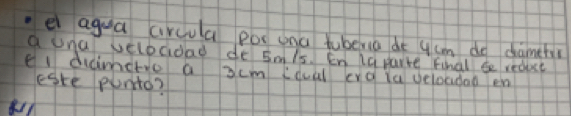 • el agua circula por una tuberia de 4cm de diametro
a una velocidad de 5m/s. En la parte final se reduce
el dicimetro a 3cm icual era la velocidad en
este punto?
R//